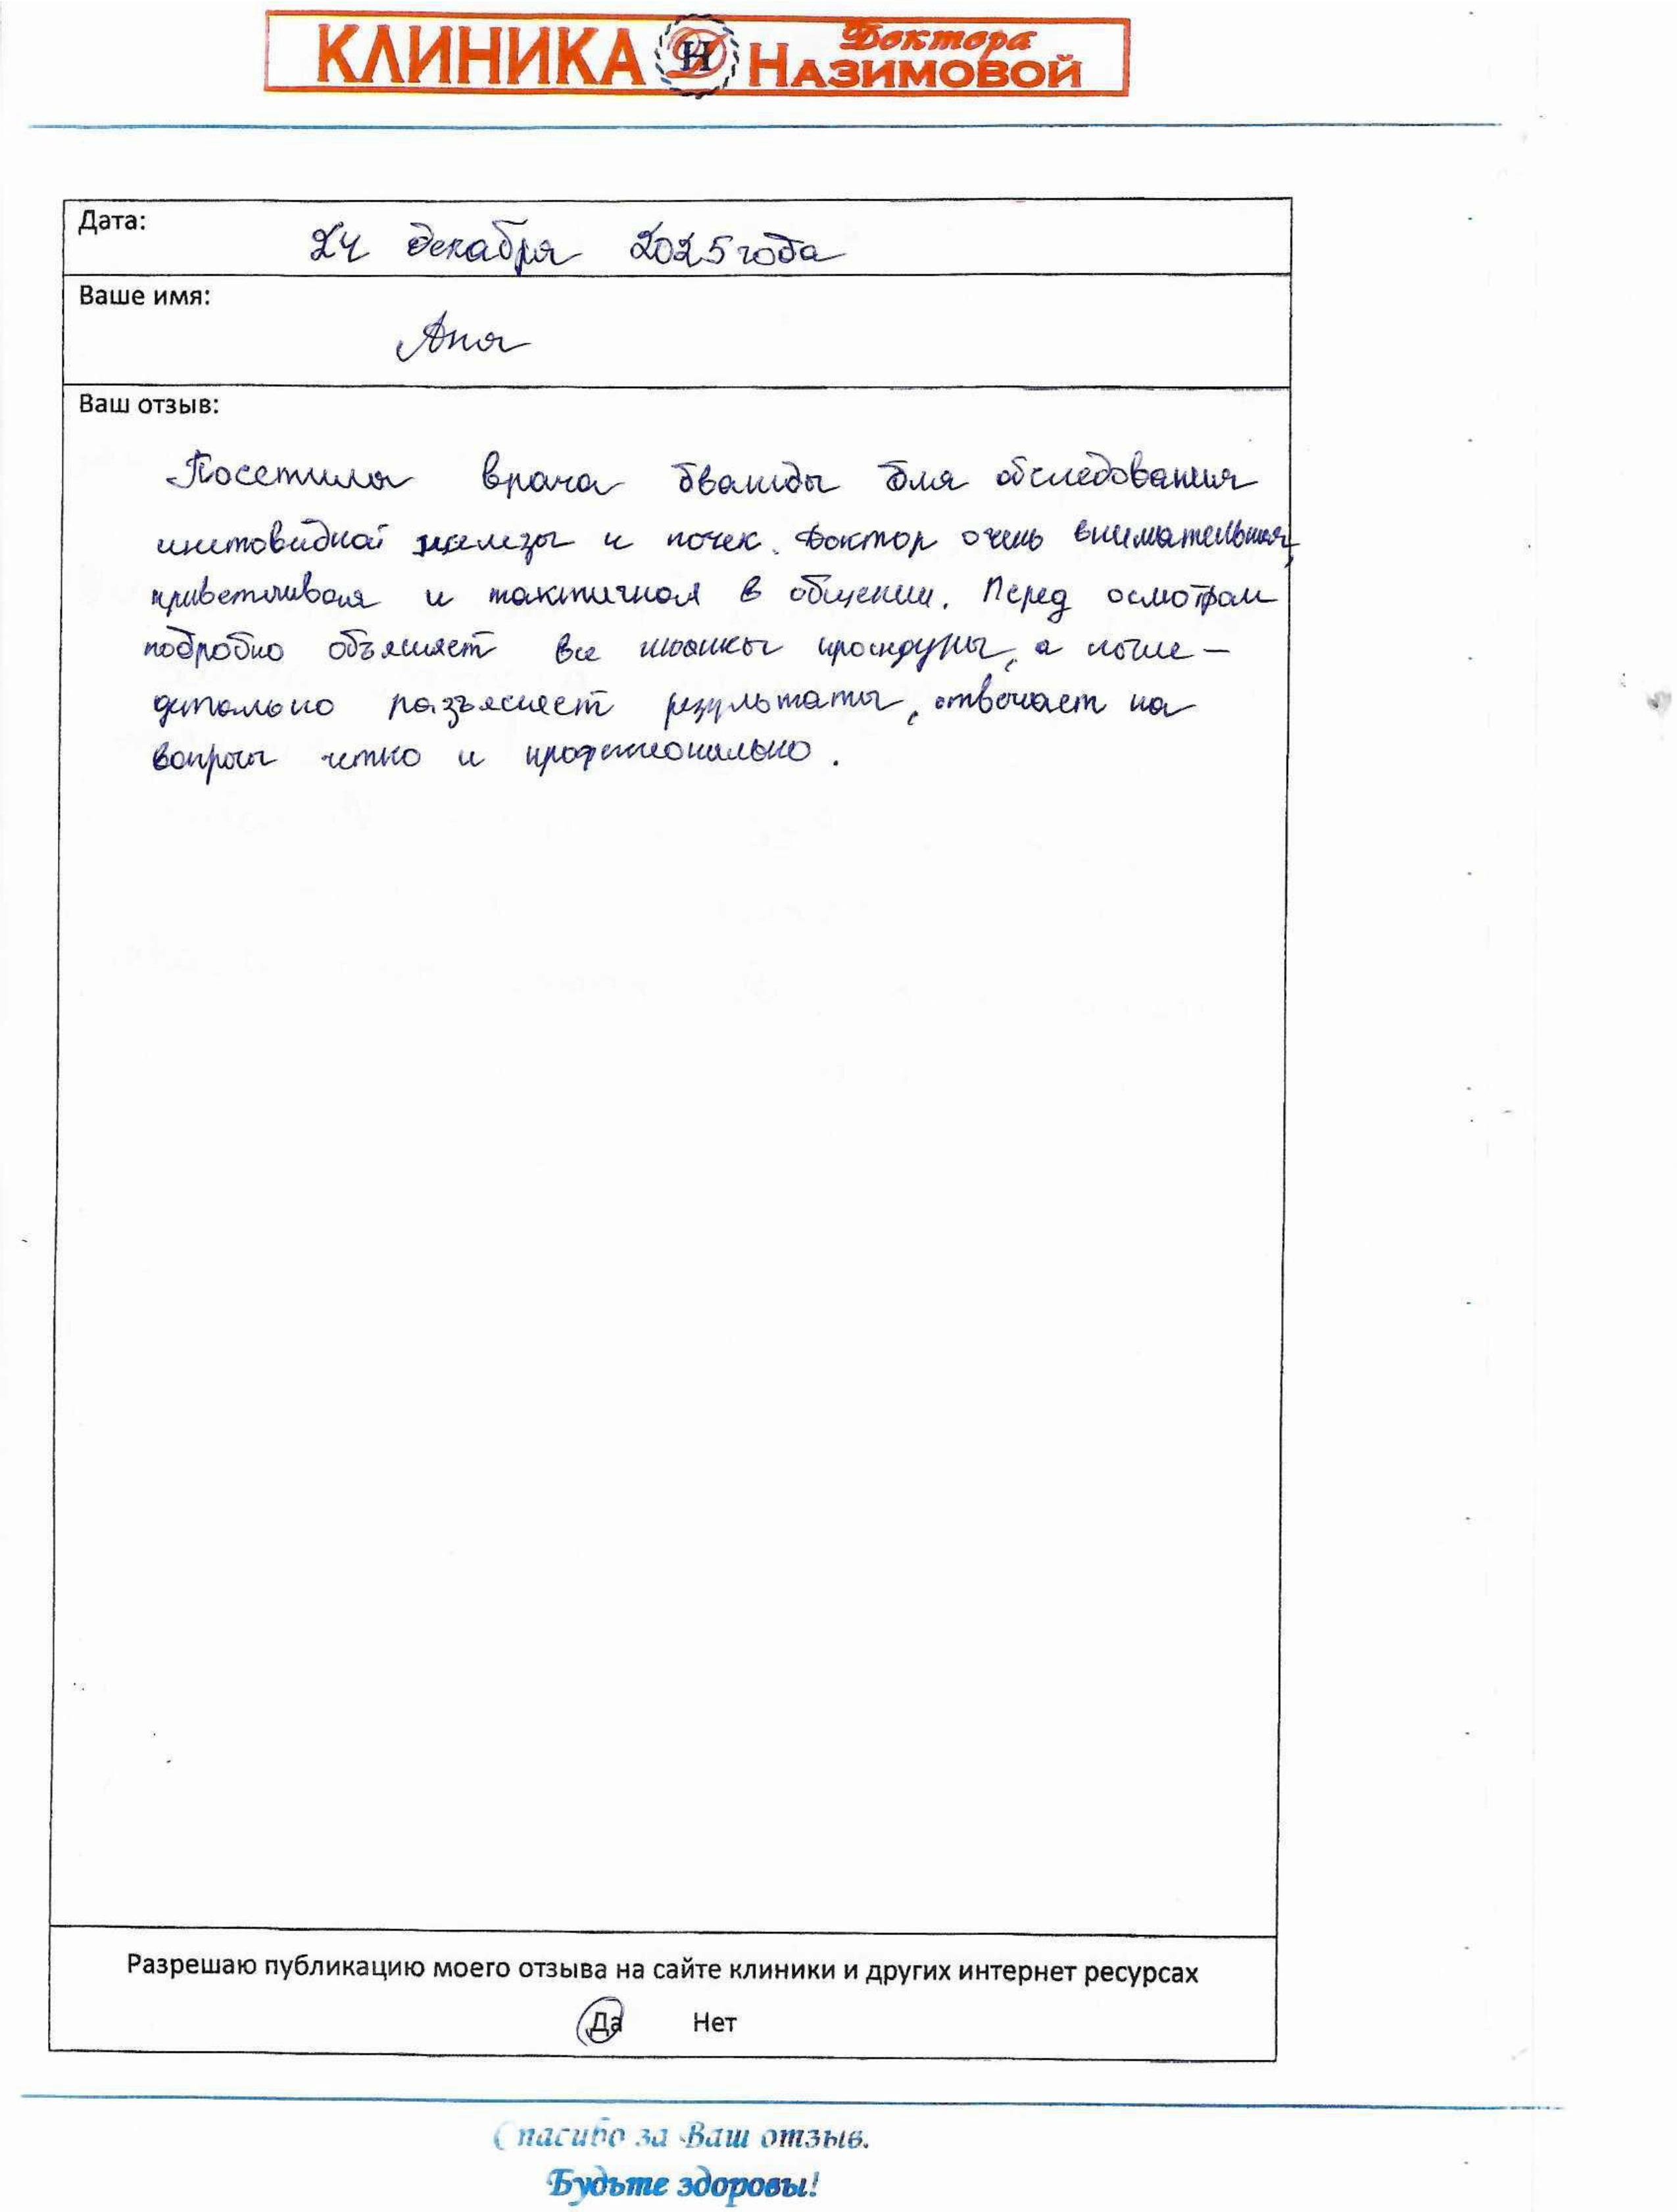 КЛИНИКА ДН Доктора НАЗИМОВОЙ
Дата: 24 декабря 2025 года
Ваше имя:
Аня
Ваш отзыв:
Посетила врача дважды для обследования
щитовидной железы и почек. Доктор очень внимательная,
приветливая и тактичная в общении. Перед осмотром
подробно объясняет все нюансы процедуры, а после –
детально разъясняет результаты, отвечает на
вопросы четко и профессионально.
Разрешаю публикацию моего отзыва на сайте клиники и других интернет ресурсах
Да Нет
Спасибо за Ваш отзыв.
Будьте здоровы!